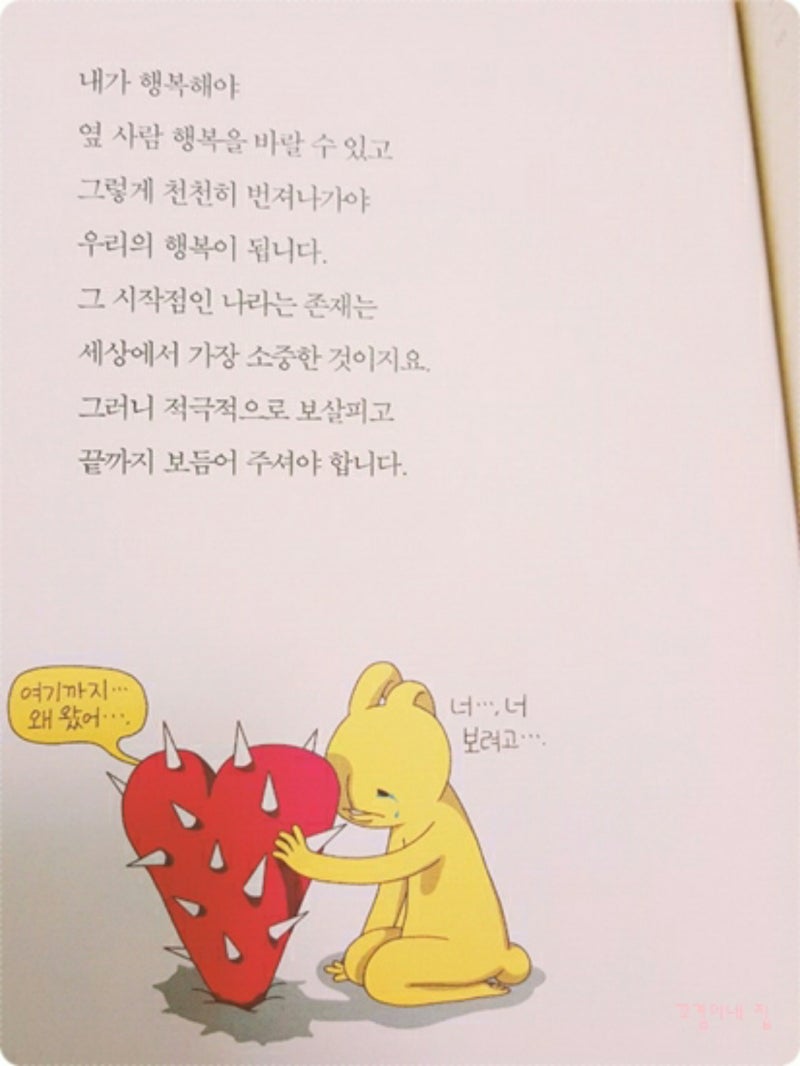 내가 행복해야
옆 사람 행복을 바랄 수 있고
그렇게 천천히 번져나가야
우리의 행복이 됩니다.
그 시작점인 나라는 존재는
세상에서 가장 소중한 것이지요.
그러니 적극적으로 보살피고
끝까지 보듬어 주셔야 합니다.
여기까지…
왜 왔어….
너…, 너
보려고….